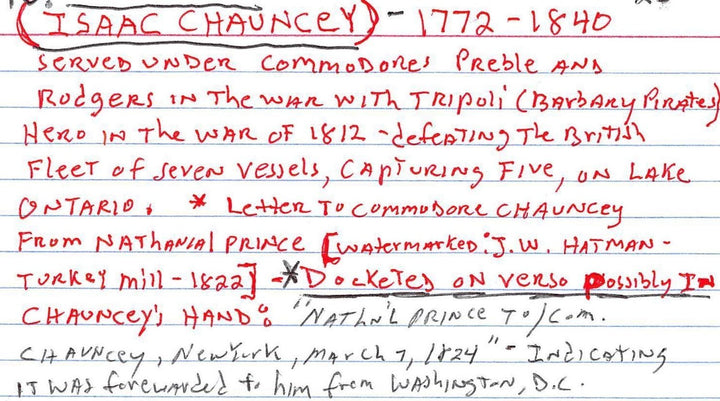 (ISAAC CHAUNCEY) - 1772 - 1840
SERVED UNDER COMMODORES PREBLE AND
RODGERS IN THE WAR WITH TRIPOLI (BARBARY PIRATES)
HERO IN THE WAR OF 1812 - defeATING THE BRITISH
FLEET of seven vessels, CAPTURING FIVE, ON LAKE
ONTARIO. * LETTER TO COMMODORE CHAUNCEY
FROM NATHANIAL PRINCE [WATERMARKED: J.W. HATMAN -
TURKEY mill - 1822] - * DOCKETED ON VERSO Possibly IN
CHAUNCEY'S HAND: "NATHN'L PRINCE TO/Com.
CHAUNCEY, New York, MARCH 7, 1824" - INDICATING
IT WAS forewarded to him from WASHINGTON, D.C.